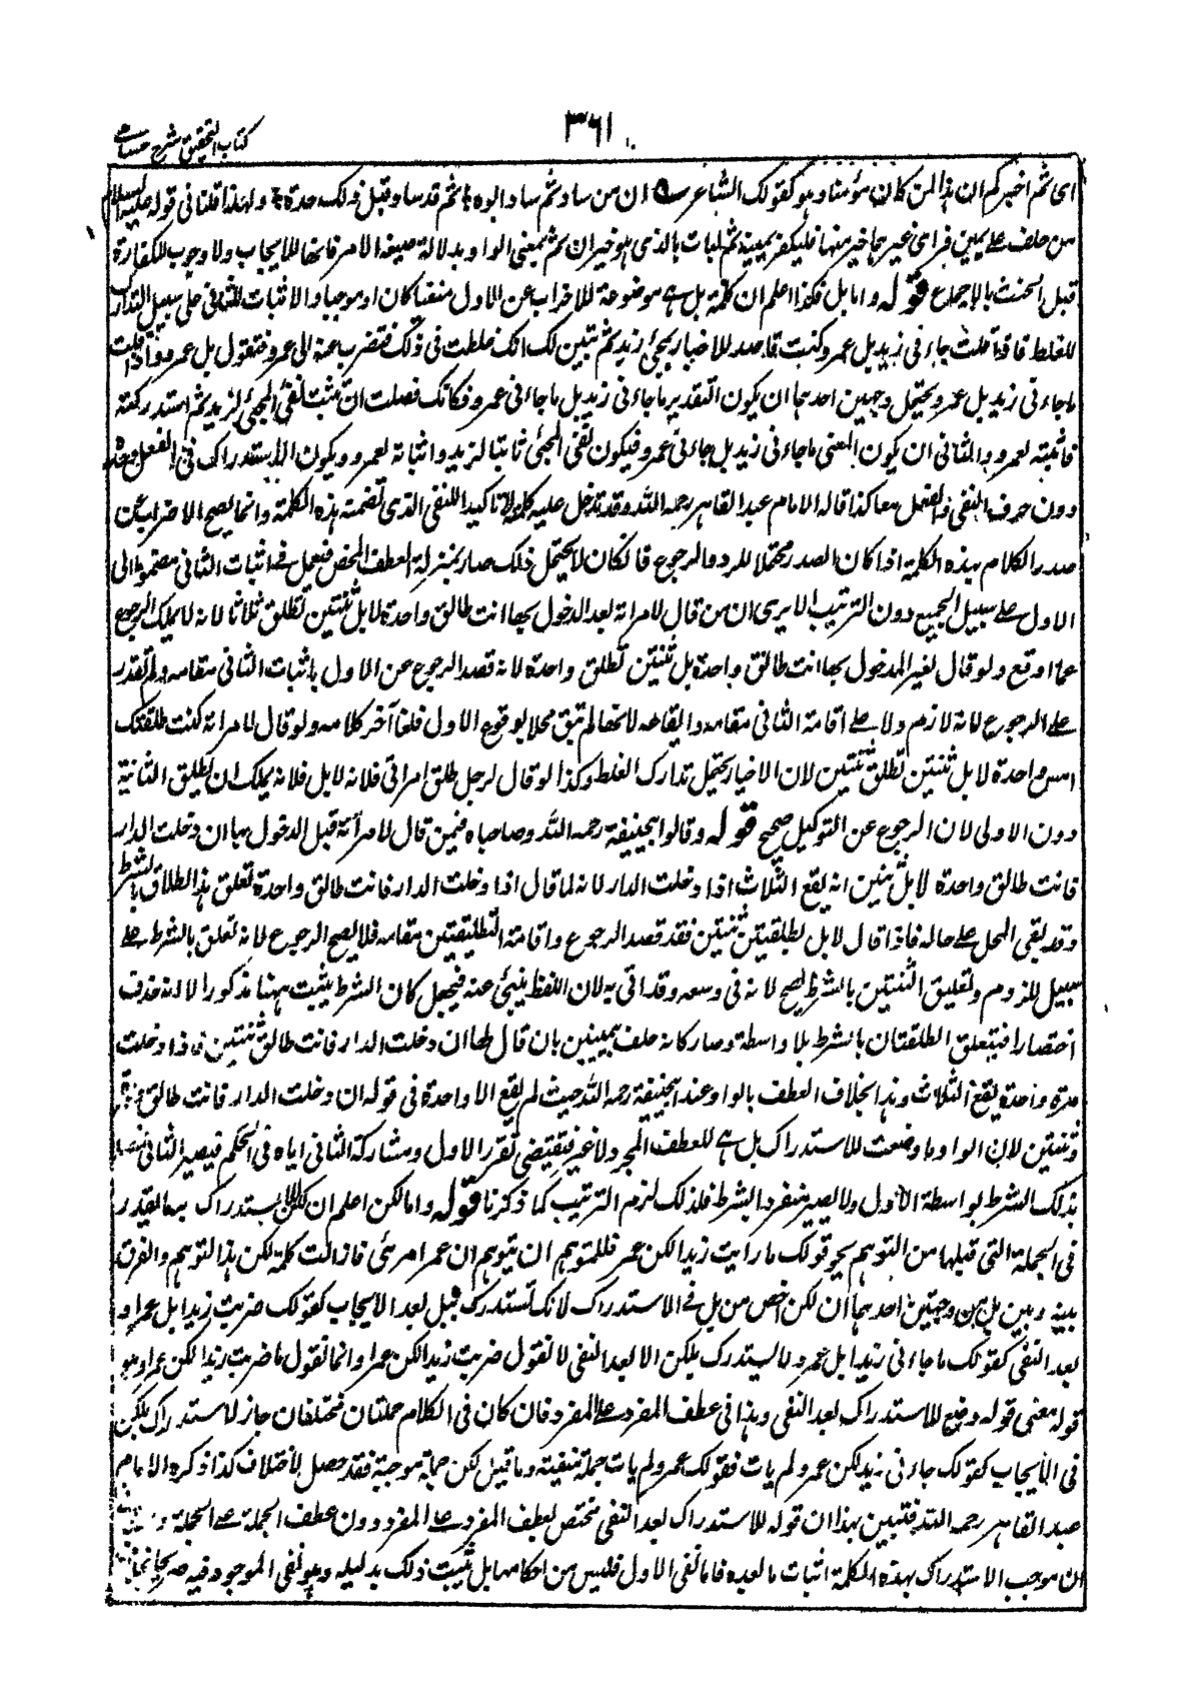 ٣٦١
كتاب التحقيق شرح حسامى
اى ثم اخبركم ان هذا لمن كان مؤمنا وهو كقولك الشاعر ان من ساد ثم ساد ابوه ثم قد ساد قبل ذلك جده ولهذا قلنا فى قوله عليه السلام
من حلف على يمين فراى غيرها خيرا منها فليكفر يمينه ثم ليات بالذى هو خير ان ثم بمعنى الواو بدلالة صيغة الامر فانها للايجاب ولا وجوب للكفارة
قبل الحنث بالاجماع قوله واما بل فكذا اعلم ان كلمة بل موضوعة للاضراب عن الاول منفيا كان او موجبا والاثبات للثانى على سبيل التدارك
للغلط فاذا قلت جاءنى زيد بل عمرو كنت قاصدا للاخبار بمجئ زيد ثم تبين لك انك غلطت فى ذلك فتضرب عنه الى عمرو فتقول بل عمرو واذا قلت
ما جاءنى زيد بل عمرو يحتمل وجهين احدهما ان يكون التقدير ما جاءنى زيد بل ما جاءنى عمرو فكانك قصدت ان تثبت نفى المجئ لزيد ثم استدركته
فاثبته لعمرو والثانى ان يكون المعنى ما جاءنى زيد بل جاءنى عمرو فيكون نفى المجئ ثابتا لزيد واثباته لعمرو ويكون الاستدراك فى الفعل وحده
دون حرف النفى والفعل معا كذا قاله الامام عبد القاهر رحمه الله وقد تدخل عليه كلمة لا تاكيدا للنفى الذى تضمنته هذه الكلمة وانما يصح الاضراب عن
صدر الكلام بهذه الكلمة اذا كان الصدر محتملا للرد والرجوع فان كان لا يحتمل ذلك صار بمنزلة العطف المحض فيعمل فى اثبات الثانى مضموما الى
الاول على سبيل الجمع دون الترتيب الا يرى ان من قال لامراته بعد الدخول بها انت طالق واحدة لا بل ثنتين تطلق ثلاثا لانه لا يملك الرجوع
عما اوقع ولو قال لغير المدخول بها انت طالق واحدة بل ثنتين تطلق واحدة لانه قصد الرجوع عن الاول باثبات الثانى مقامه ولم يقدر
على الرجوع لانه لازم ولا على اقامة الثانى مقامه وايقاعه لانها لم تبق محلا بوقوع الاول فلغا آخر كلامه ولو قال لامراته كنت طلقتك
امس واحدة لا بل ثنتين تطلق ثنتين لان الاخبار يحتمل تدارك الغلط وكذا لو قال لرجل طلق امراتى فلانة لا بل فلانة يملك ان يطلق الثانية
دون الاولى لان الرجوع عن التوكيل صحيح قوله وقالوا ابوحنيفة رحمه الله وصاحباه فيمن قال لامراته قبل الدخول بها ان دخلت الدار
فانت طالق واحدة لا بل ثنتين انه يقع الثلاث اذا دخلت الدار لانه لما قال اذا دخلت الدار فانت طالق واحدة تعلق هذا الطلاق بالشرط
وقد بقى المحل على حاله فاذا قال لا بل تطليقتين ثنتين فقد قصد الرجوع واقامة التطليقتين مقامه فلا يصح الرجوع لانه تعلق بالشرط على
سبيل اللزوم وتعليق الثنتين بالشرط يصح لانه فى وسعه وقد اتى به لان اللفظ ينبئ عنه فيجعل كان الشرط يثبت ههنا مذكورا الا انه حذف
اختصارا فيتعلق الطلقتان بالشرط بلا واسطة وصار كانه حلف بيمينين بان قال لها ان دخلت الدار فانت طالق ثنتين فاذا دخلت
مرة واحدة يقع الثلاث وهذا بخلاف العطف بالواو عند ابيحنيفة رحمه الله حيث لم يقع الا واحدة فى قوله ان دخلت الدار فانت طالق
وثنتين لان الواو ما وضعت للاستدراك بل هى للعطف المجرد لا غير فيقتضى تقرر الاول ومشاركة الثانى اياه فى الحكم فيصير الثانى
بذلك الشرط بواسطة الاول ولا يصير منفردا بشرط فلذلك لزم الترتيب كما ذكرنا قوله واما لكن اعلم ان كلمة لكن للاستدراك بها لقدر
فى الجملة التى قبلها من التوهم نحو قولك ما رايت زيدا لكن عمرا فللمتوهم ان يتوهم ان عمرا مرئى فازالت كلمة لكن هذا التوهم والفرق
بينه وبين بل من وجهين احدهما ان لكن اخص من بل فى الاستدراك لانك تستدرك ببل بعد الايجاب كقولك ضربت زيدا بل عمرا و
بعد النفى كقولك ما جاءنى زيد بل عمرو ولا يستدرك بلكن الا بعد النفى لا تقول ضربت زيدا لكن عمرا وانما تقول ما ضربت زيدا لكن عمرا وهو
قوله معنى قوله وضع للاستدراك بعد النفى وهذا فى عطف المفرد على المفرد فان كان فى الكلام جملتان مختلفتان جاز الاستدراك بلكن
فى الايجاب كقولك جاءنى زيد لكن عمرو لم يات فقولك عمرو لم يات جملة منفية وما قبل لكن جملة موجبة فقد حصل الاختلاف كذا ذكره الامام
عبد القاهر رحمه الله فتبين بهذا ان قوله للاستدراك بعد النفى مختص بعطف المفرد على المفرد دون عطف الجملة على الجملة
ان موجب الاستدراك بهذه الكلمة اثبات ما بعده فاما نفى الاول فليس من احكامها بل يثبت ذلك بدليله وهو النفى الموجود فيه صريحا